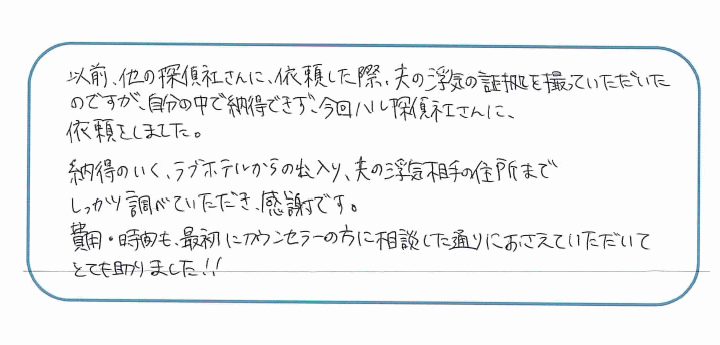 以前、他の探偵社さんに、依頼した際、夫の浮気の証拠を撮っていただいた
のですが、自分の中で納得できず、今回ハル探偵社さんに、
依頼をしました。
納得のいく、ラブホテルからの出入り、夫の浮気相手の住所まで
しっかり調べていただき、感謝です。
費用・時間も、最初にカウンセラーの方に相談した通りにおさえていただいて
とても助りました!!